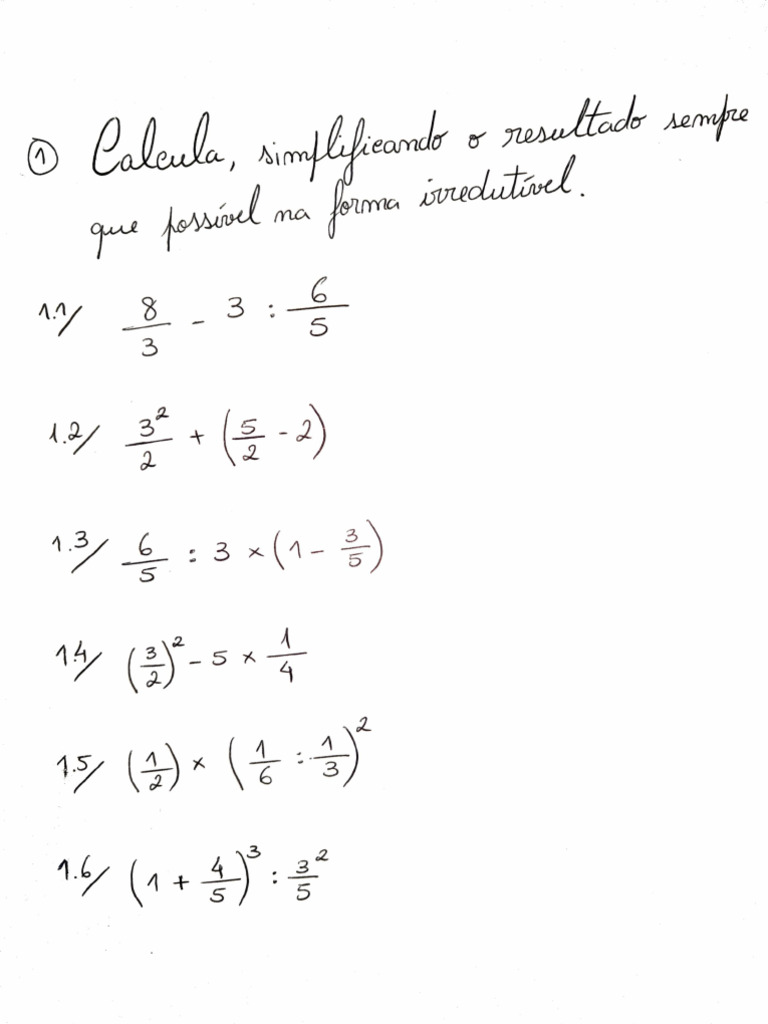 ① Calcula, simplificando o resultado sempre
que possível na forma irredutível.
1.1/ 8/3 - 3 : 6/5
1.2/ 3²/2 + (5/2 - 2)
1.3/ 6/5 : 3 × (1 - 3/5)
1.4/ (3/2)² - 5 × 1/4
1.5/ (1/2) × (1/6 : 1/3)²
1.6/ (1 + 4/5)³ : 3²/5